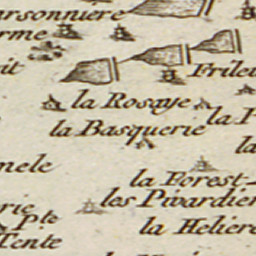 arsonniere
rme
it
Frileu
la Rosaye
la P
la Basquerie
la
mele
la Forest-
les Pivardier
rie
Pte
la Heliere
Tente